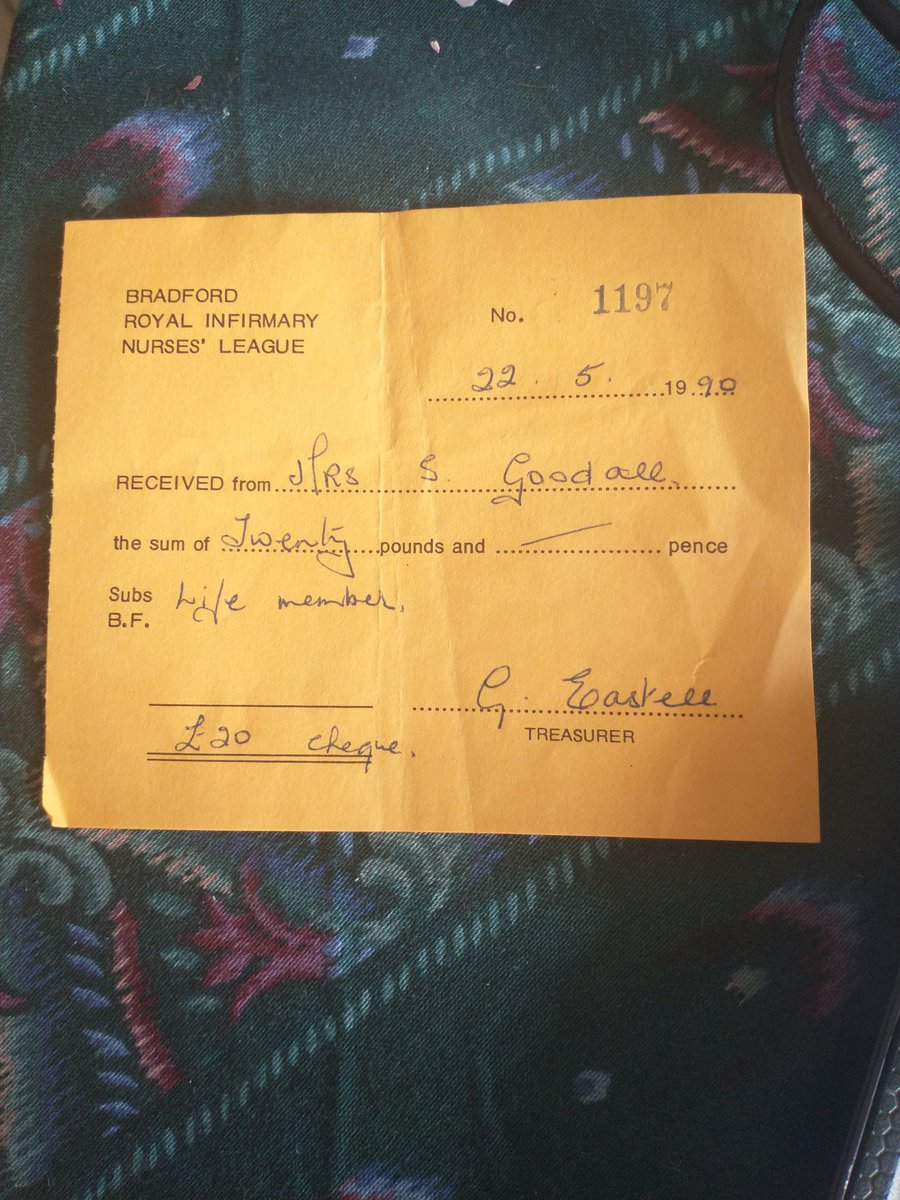 BRADFORD
ROYAL INFIRMARY
NURSES' LEAGUE
No. 1197
22. 5. 1990
RECEIVED from Mrs S. Goodall.
the sum of Twenty pounds and — pence
Subs Life member.
B.F.
G. Eastell
TREASURER
£20 cheque.